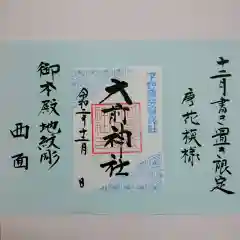 十二月書き置き限定
唐花模様
大前神社
令和二年十二月 日
御本殿地紋彫
西面